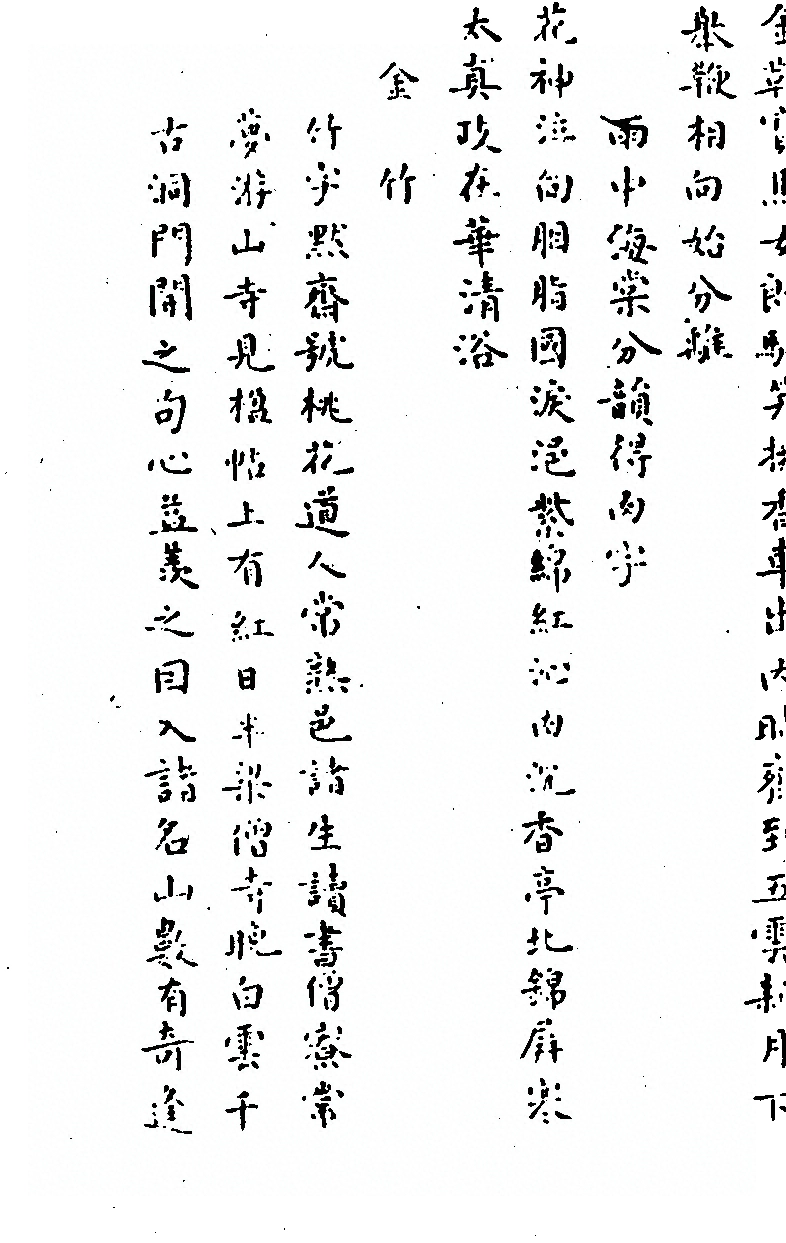 馬女郎騎 香車出內 到五雲新月下
舉鞭相向始分離
雨中海棠分韻得肉字
花神泣向胭脂國淚浥紫綿紅沁肉沉香亭北錦屏寒
太真政在華清浴
金竹
竹字黙齋號桃花道人常熟邑諸生讀書僧寮常
夢游山寺見楹帖上有紅日半梁僧寺晚白雲千
古洞門開之句心益羨之因入諸名山數有奇逢